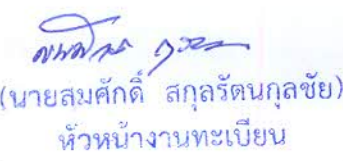 (นายสมศักดิ์ สกุลรัตนกุลชัย)
หัวหน้างานทะเบียน